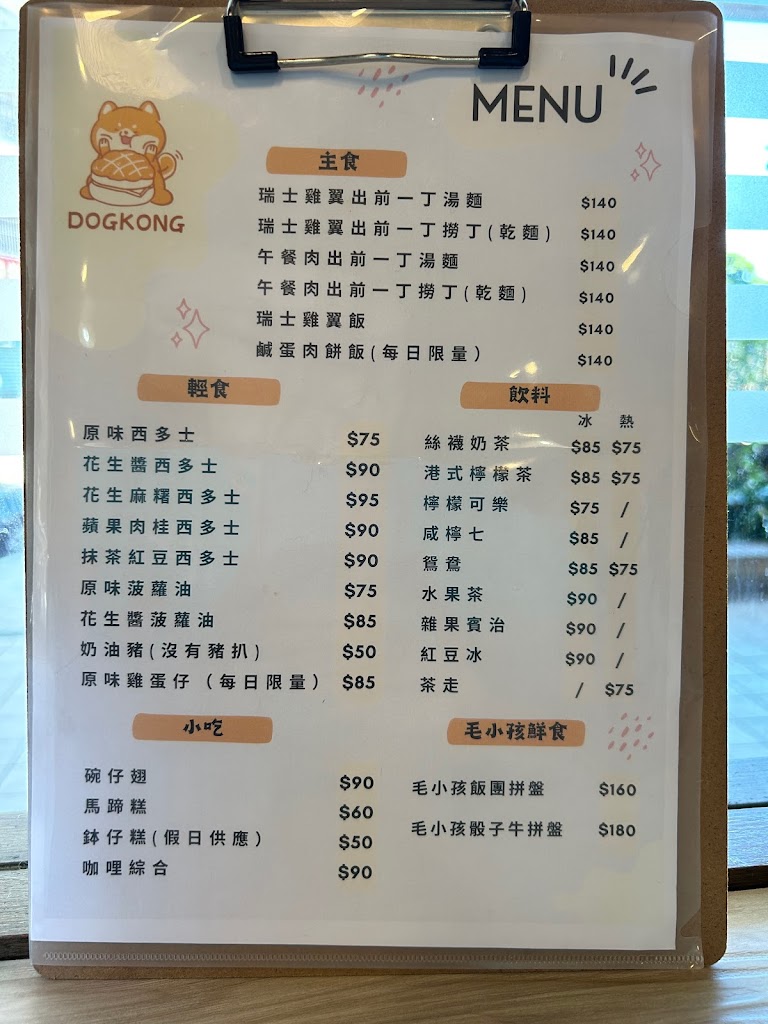 MENU
DOGKONG
主食
瑞士雞翼出前一丁湯麵 $140
瑞士雞翼出前一丁撈丁(乾麵) $140
午餐肉出前一丁湯麵 $140
午餐肉出前一丁撈丁(乾麵) $140
瑞士雞翼飯 $140
鹹蛋肉餅飯(每日限量) $140
輕食
原味西多士 $75
花生醬西多士 $90
花生麻糬西多士 $95
蘋果肉桂西多士 $90
抹茶紅豆西多士 $90
原味菠蘿油 $75
花生醬菠蘿油 $85
奶油豬(沒有豬扒) $50
原味雞蛋仔 (每日限量) $85
飲料
冰 熱
絲襪奶茶 $85 $75
港式檸檬茶 $85 $75
檸檬可樂 $75 /
咸檸七 $85 /
鴛鴦 $85 $75
水果茶 $90 /
雜果賓治 $90 /
紅豆冰 $90 /
茶走 / $75
小吃
碗仔翅 $90
馬蹄糕 $60
缽仔糕(假日供應) $50
咖哩綜合 $90
毛小孩鮮食
毛小孩飯團拼盤 $160
毛小孩骰子牛拼盤 $180